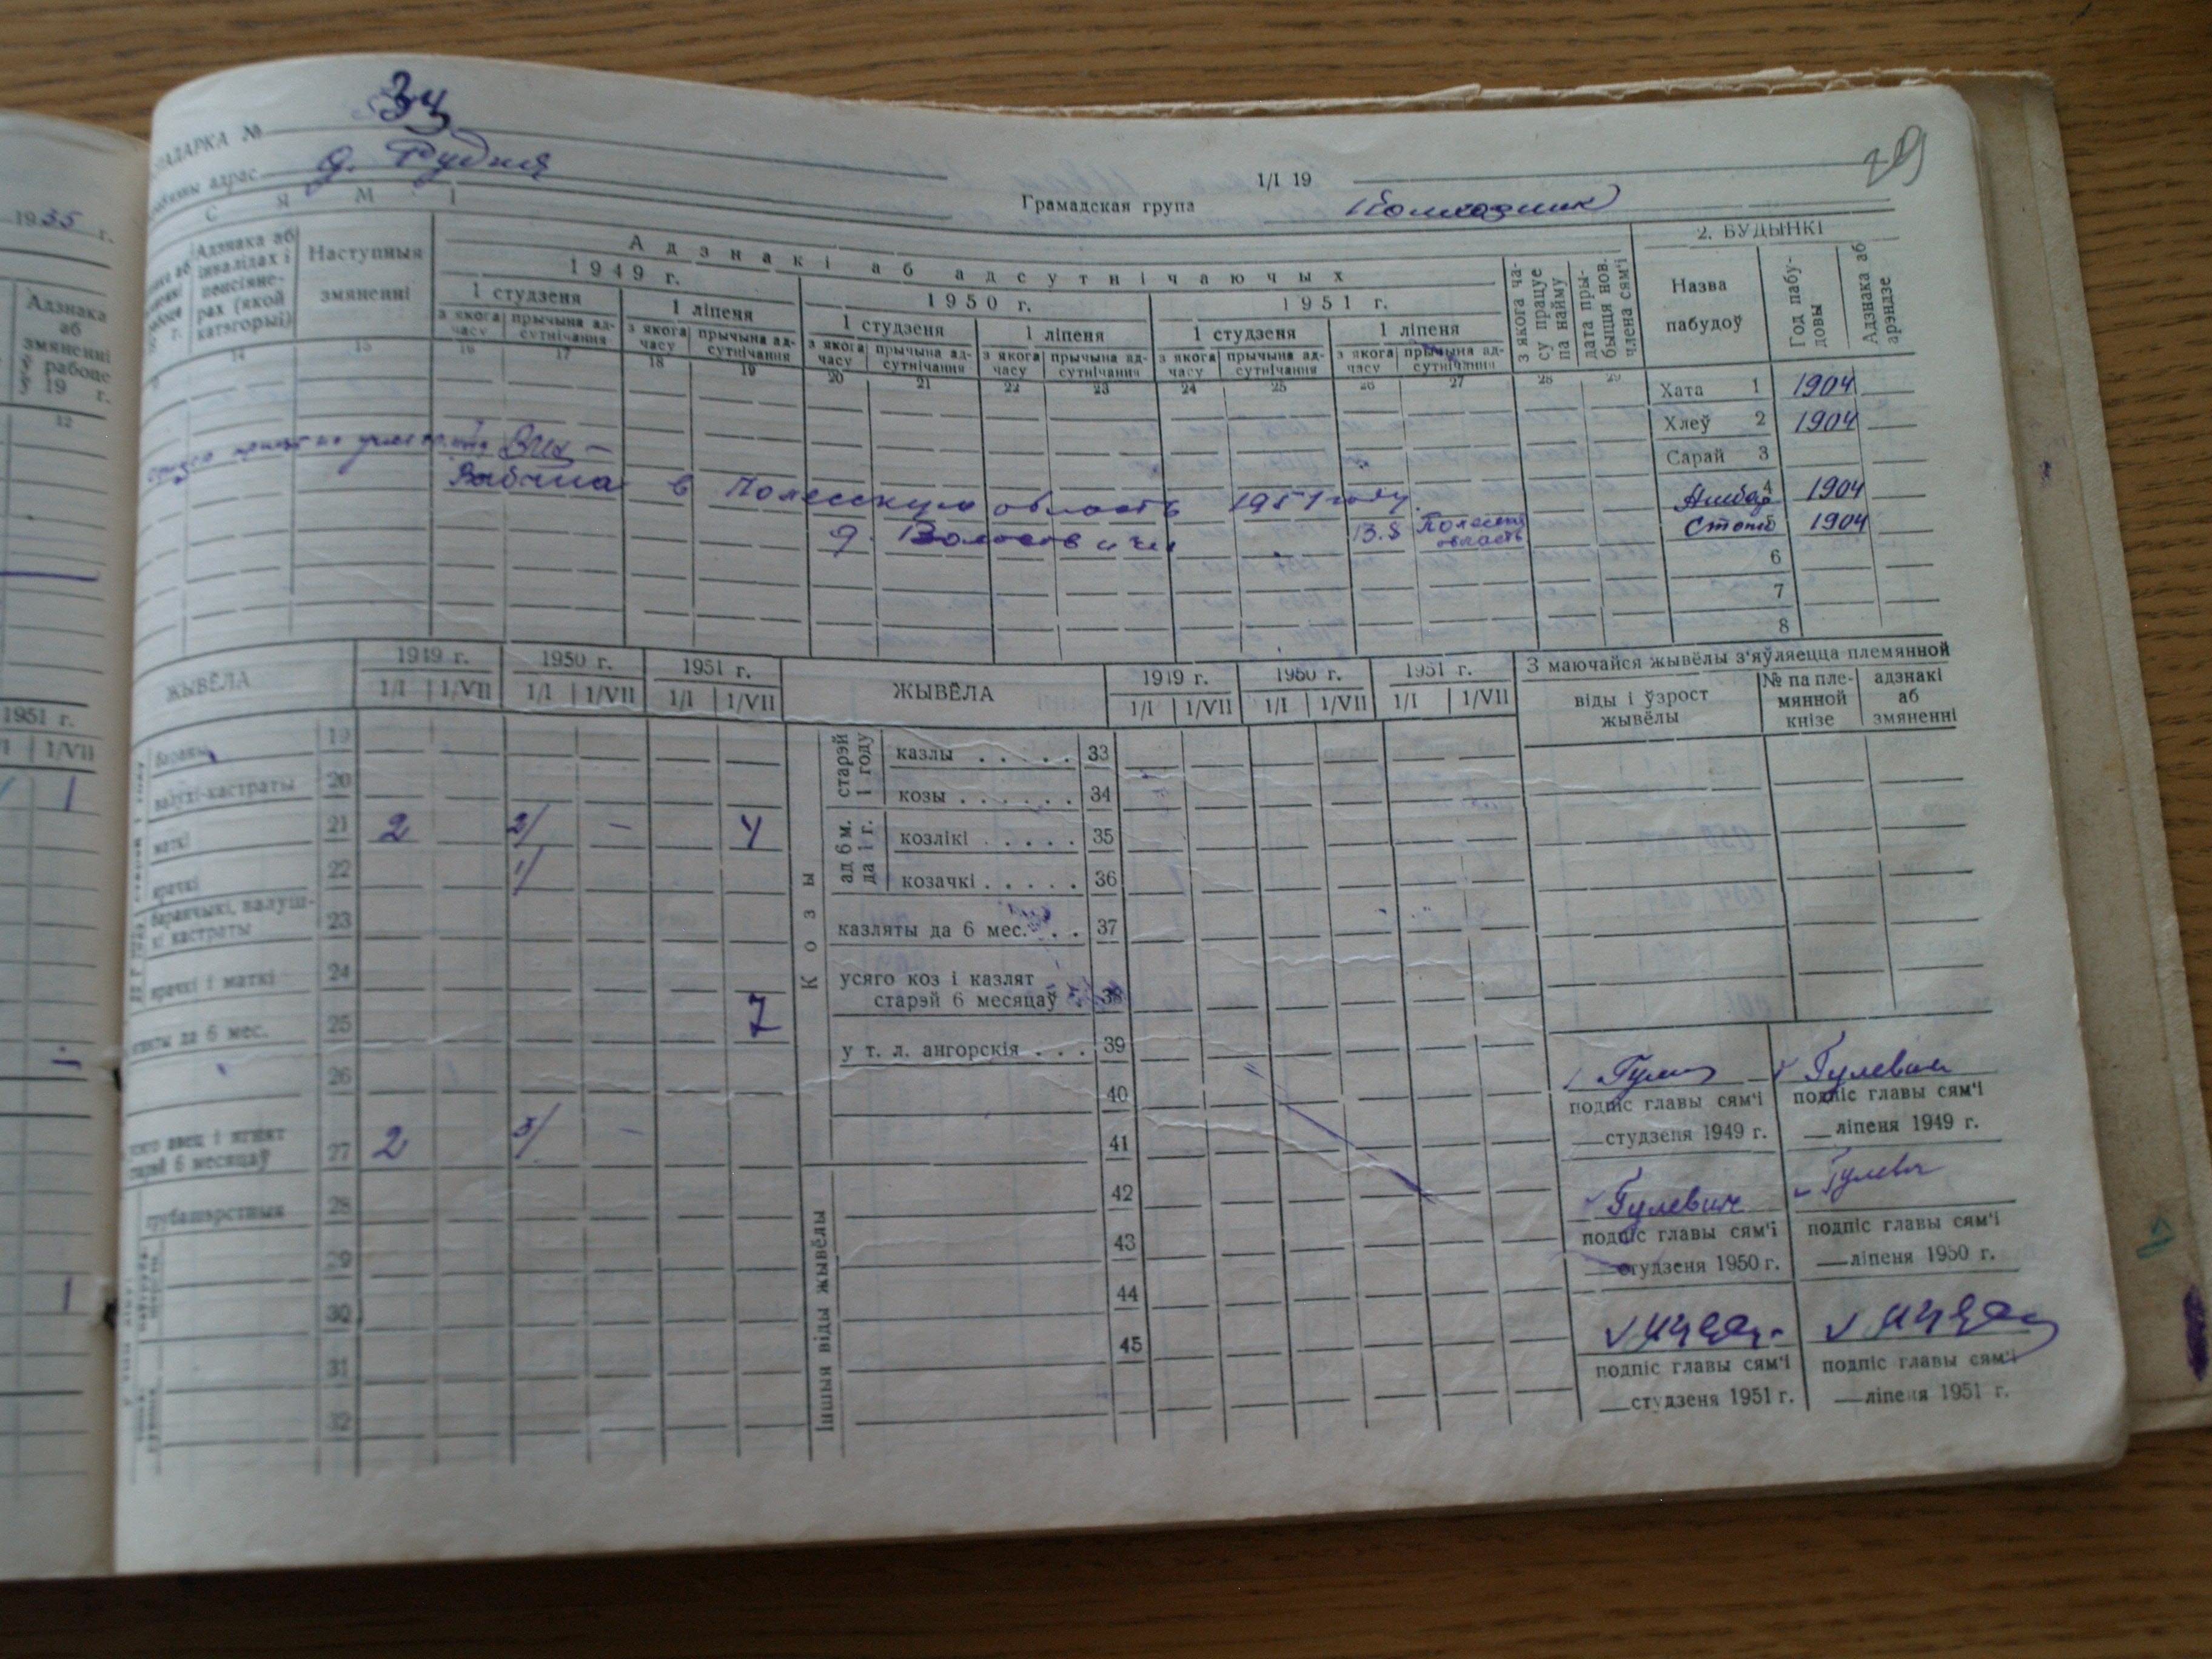 34
АДАРКА №
адрас д. Рудня
1/I 19
Грамадская група Колхозник
29
С Я М І
1935 г.
Адзнака аб змяненні ў рабоце ў 19 г.
12
1951 г.
1/VII
1
1
Адзнака аб інвалідах і пенсіяне-
рах (якой катэгорыі)
Наступныя
змяненні
Адзнакі аб адсутнічаючых
1949 г.
1950 г.
1951 г.
1 студзеня
1 ліпеня
1 студзеня
1 ліпеня
1 студзеня
1 ліпеня
з якога часу
прычына ад-
сутнічання
з якога часу
прычына ад-
сутнічання
з якога часу
прычына ад-
сутнічання
з якога часу
прычына ад-
сутнічання
з якога часу
прычына ад-
сутнічання
з якога часу
прычына ад-
сутнічання
з якога ча-
су працуе
па найму
дата пры-
быцця нов.
члена сям'і
14 15 16 17 18 19 20 21 22 23 24 25 26 27 28 29
2. БУДЫНКІ
Назва
пабудоў
Год пабу-
довы
Адзнака аб
арэндзе
Хата 1 1904
Хлеў 2 1904
Сарай 3
4 1904
5 1904
6
7
8
в Полесскую область 1951 году
д.
13.5 Полесск область
ЖЫВЁЛА
1949 г.
1950 г.
1951 г.
1/I 1/VII 1/I 1/VII 1/I 1/VII
бараны 19
валухі-кастраты 20
маткі 21 2 2/ – 4
ярачкі 22 1/
баранчыкі, валуш-
кі кастраты 23
ярачкі і маткі 24
да 6 мес. 25 7
26
авец і ягнят
старэй 6 месяцаў 27 2 3/ –
грубашэрстныя 28
29
30
31
32
ЖЫВЁЛА
1949 г.
1950 г.
1951 г.
1/I 1/VII 1/I 1/VII 1/I 1/VII
Козы
старэй 1 году
казлы . . . . . 33
козы . . . . . . 34
ад 6 м. да 1 г.
козлікі . . . . . 35
козачкі . . . . . 36
казляты да 6 мес. . . 37
усяго коз і казлят
старэй 6 месяцаў . 38
у т. л. ангорскія . . . 39
40
41
Іншыя віды жывёлы
42
43
44
45
З маючайся жывёлы з'яўляецца племянной
віды і ўзрост
жывёлы
№ па пле-
мянной
кнізе
адзнакі
аб
змяненні
Гулевич
подпіс главы сям'і
подпіс главы сям'і
студзеня 1949 г.
ліпеня 1949 г.
Гулевич
подпіс главы сям'і
подпіс главы сям'і
студзеня 1950 г.
ліпеня 1950 г.
подпіс главы сям'і
подпіс главы сям'і
студзеня 1951 г.
ліпеня 1951 г.